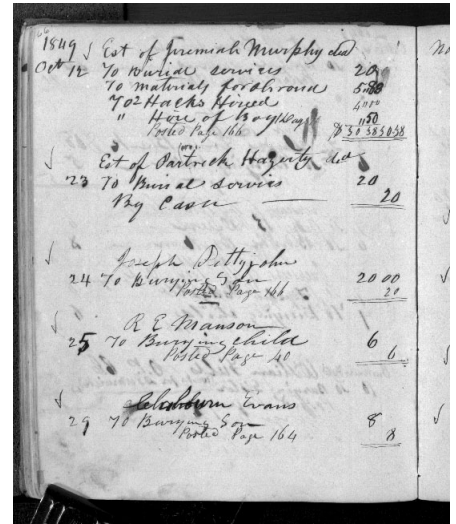 1849 Est of Jeremiah Murphy decd
Oct 12 To Burial services 20
To materials for Shroud
To 2 Hacks Hired 4 00
" Hire of Boy 1 Day " 50
Posted Page 166
Est of Partreck Hagerty decd
23 To Burial servics 20
By Cash 20
Joseph Pettyjohn
24 To Burying Son 20 00
Posted Page 166 20
R E Manson
25 To Burying child 6
Posted Page 40 6
Evans
29 To Burying Son 8
Posted Page 164 8